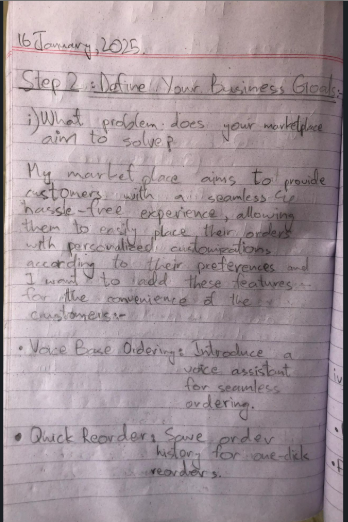 16 January, 2025.
Step 2 : Define Your Business Goals:-
i) What problem does your marketplace
aim to solve?
My market place aims to provide
customers with a seamless &
hassle-free experience, allowing
them to easily place their orders
with personalized customizations
according to their preferences and
I want to add these features
for the convenience of the
customers:-
• Voice Base Ordering: Introduce a
voice assistant
for seamless
ordering.
• Quick Reorder: Save order
history for one-click
reorders.